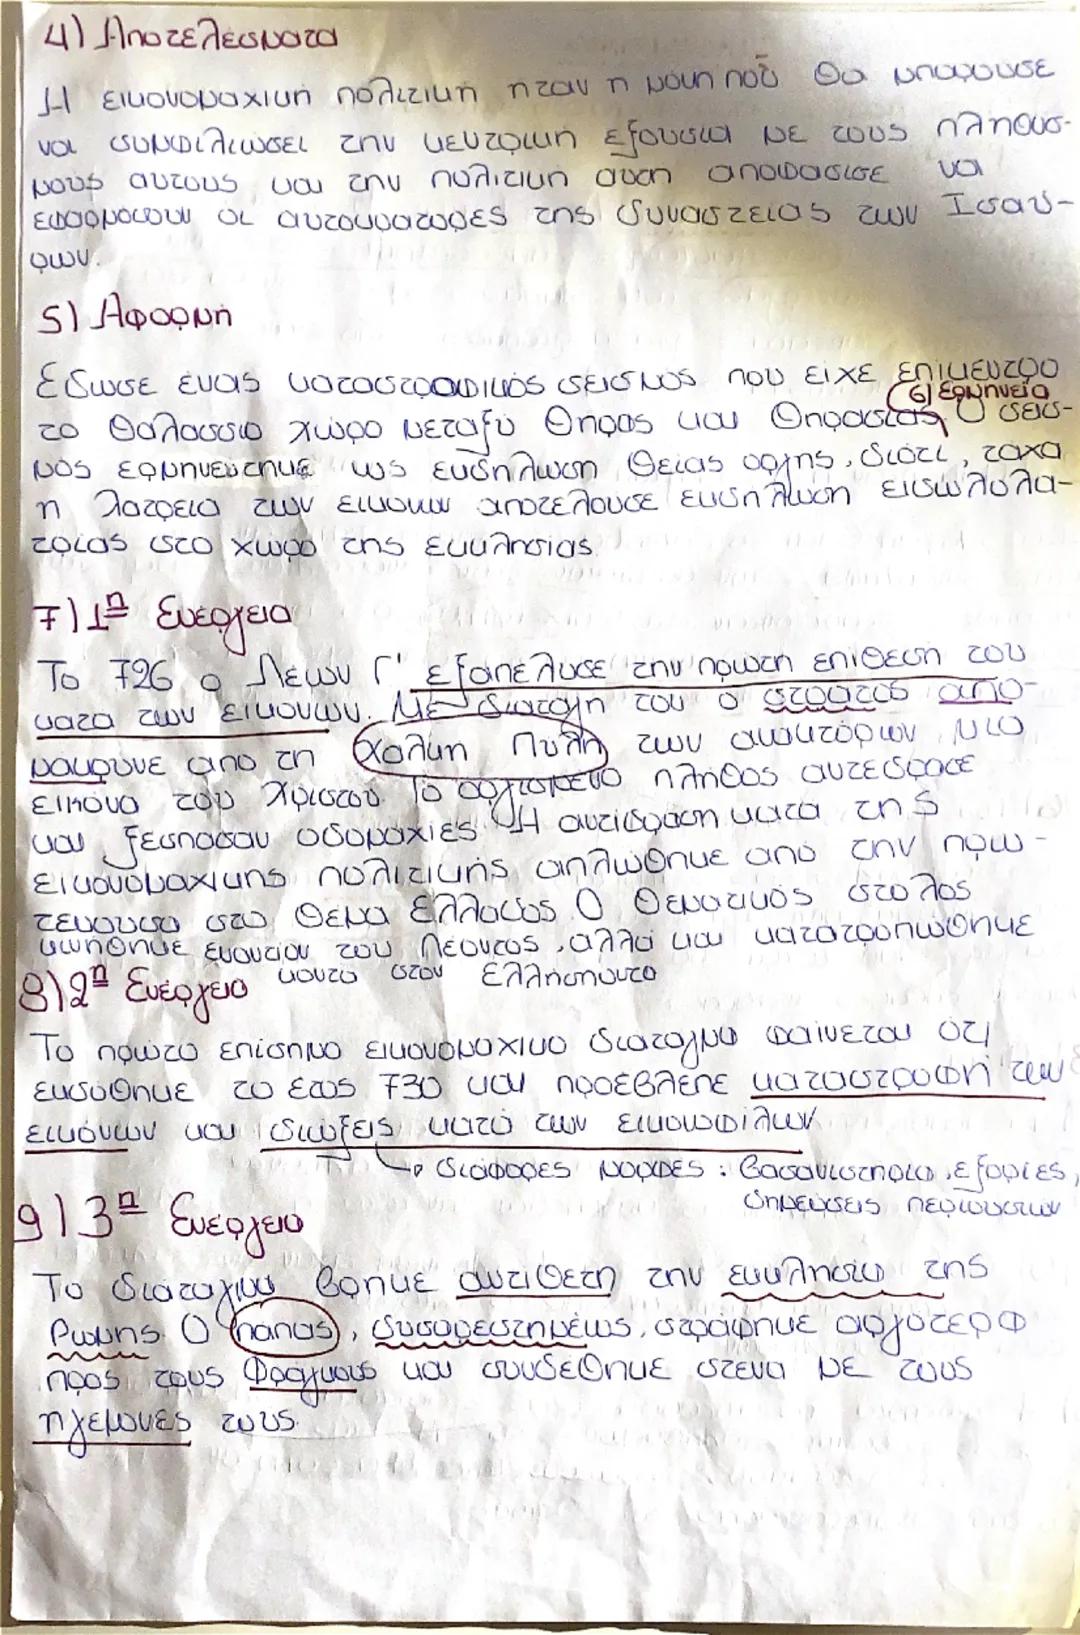 4) Αποτελέσματα
Η εικονομαχική πολιτική ήταν η μόνη που θα μπορούσε
να συμφιλιώσει την κεντρική εξουσία με τους πληθυσ-
μούς αυτούς και την πολιτική αυτή αποφάσισε να
εφαρμόσουν οι αυτοκράτορες της δυναστείας των Ισαύ-
ρων.
5) Αφορμή
Έδωσε ένας καταστροφικός σεισμός που είχε επίκεντρο
6) Ερμηνεία
το θαλάσσιο χώρο μεταξύ Θήρας και Θηρασίας. Ο σεισ-
μός ερμηνεύτηκε ως εκδήλωση θείας οργής, διότι, τάχα
η λατρεία των εικόνων αποτελούσε εκδήλωση ειδωλολα-
τρίας στο χώρο της εκκλησίας.
7) 1η Ενέργεια
Το 726 ο Λέων Γ' εξαπέλυσε την πρώτη επίθεση του
κατά των εικόνων. Με διαταγή του ο στρατός απο-
μάκρυνε από τη Χαλκή Πύλη των ανακτόρων μια
εικόνα του Χριστού. Το οργισμένο πλήθος αντέδρασε
και ξέσπασαν οδομαχίες. Η αντίδραση κατά της
εικονομαχικής πολιτικής απλώθηκε από την πρω-
τεύουσα στο Θέμα Ελλάδος. Ο θεματικός στόλος
κινήθηκε εναντίον του Λέοντος, αλλά και κατατροπώθηκε
κοντά στον Ελλήσποντο
8) 2η Ενέργεια
Το πρώτο επίσημο εικονομαχικό διάταγμα φαίνεται ότι
εκδόθηκε το έτος 730 και προέβλεπε καταστροφή των
εικόνων και διώξεις κατά των εικονοφίλων.
→ διάφορες μορφές : βασανιστήρια, εξορίες,
δημεύσεις περιουσιών
9) 3η Ενέργεια
Το διάταγμα βρήκε αντίθετη την εκκλησία της
Ρώμης. Ο πάπας, δυσαρεστημένος, στράφηκε αργότερα
προς τους Φράγκους και συνδέθηκε στενά με τους
ηγεμόνες τους.